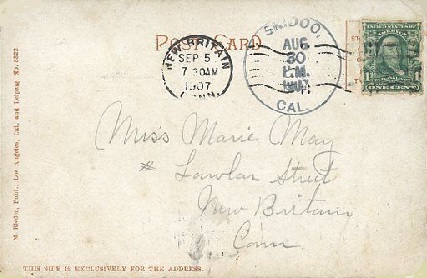 POST CARD
NEW BRITAIN
SEP 5
7 30 AM
1907
CONN.
SKIDOO,
AUG
30
P.M.
1907
CAL.
1
ONE CENT
Miss Marie May
* Lawlor Street
New Britain
Conn
M. Rieder, Publ., Los Angeles, Cal. and Leipzig
THIS SIDE IS EXCLUSIVELY FOR THE ADDRESS.